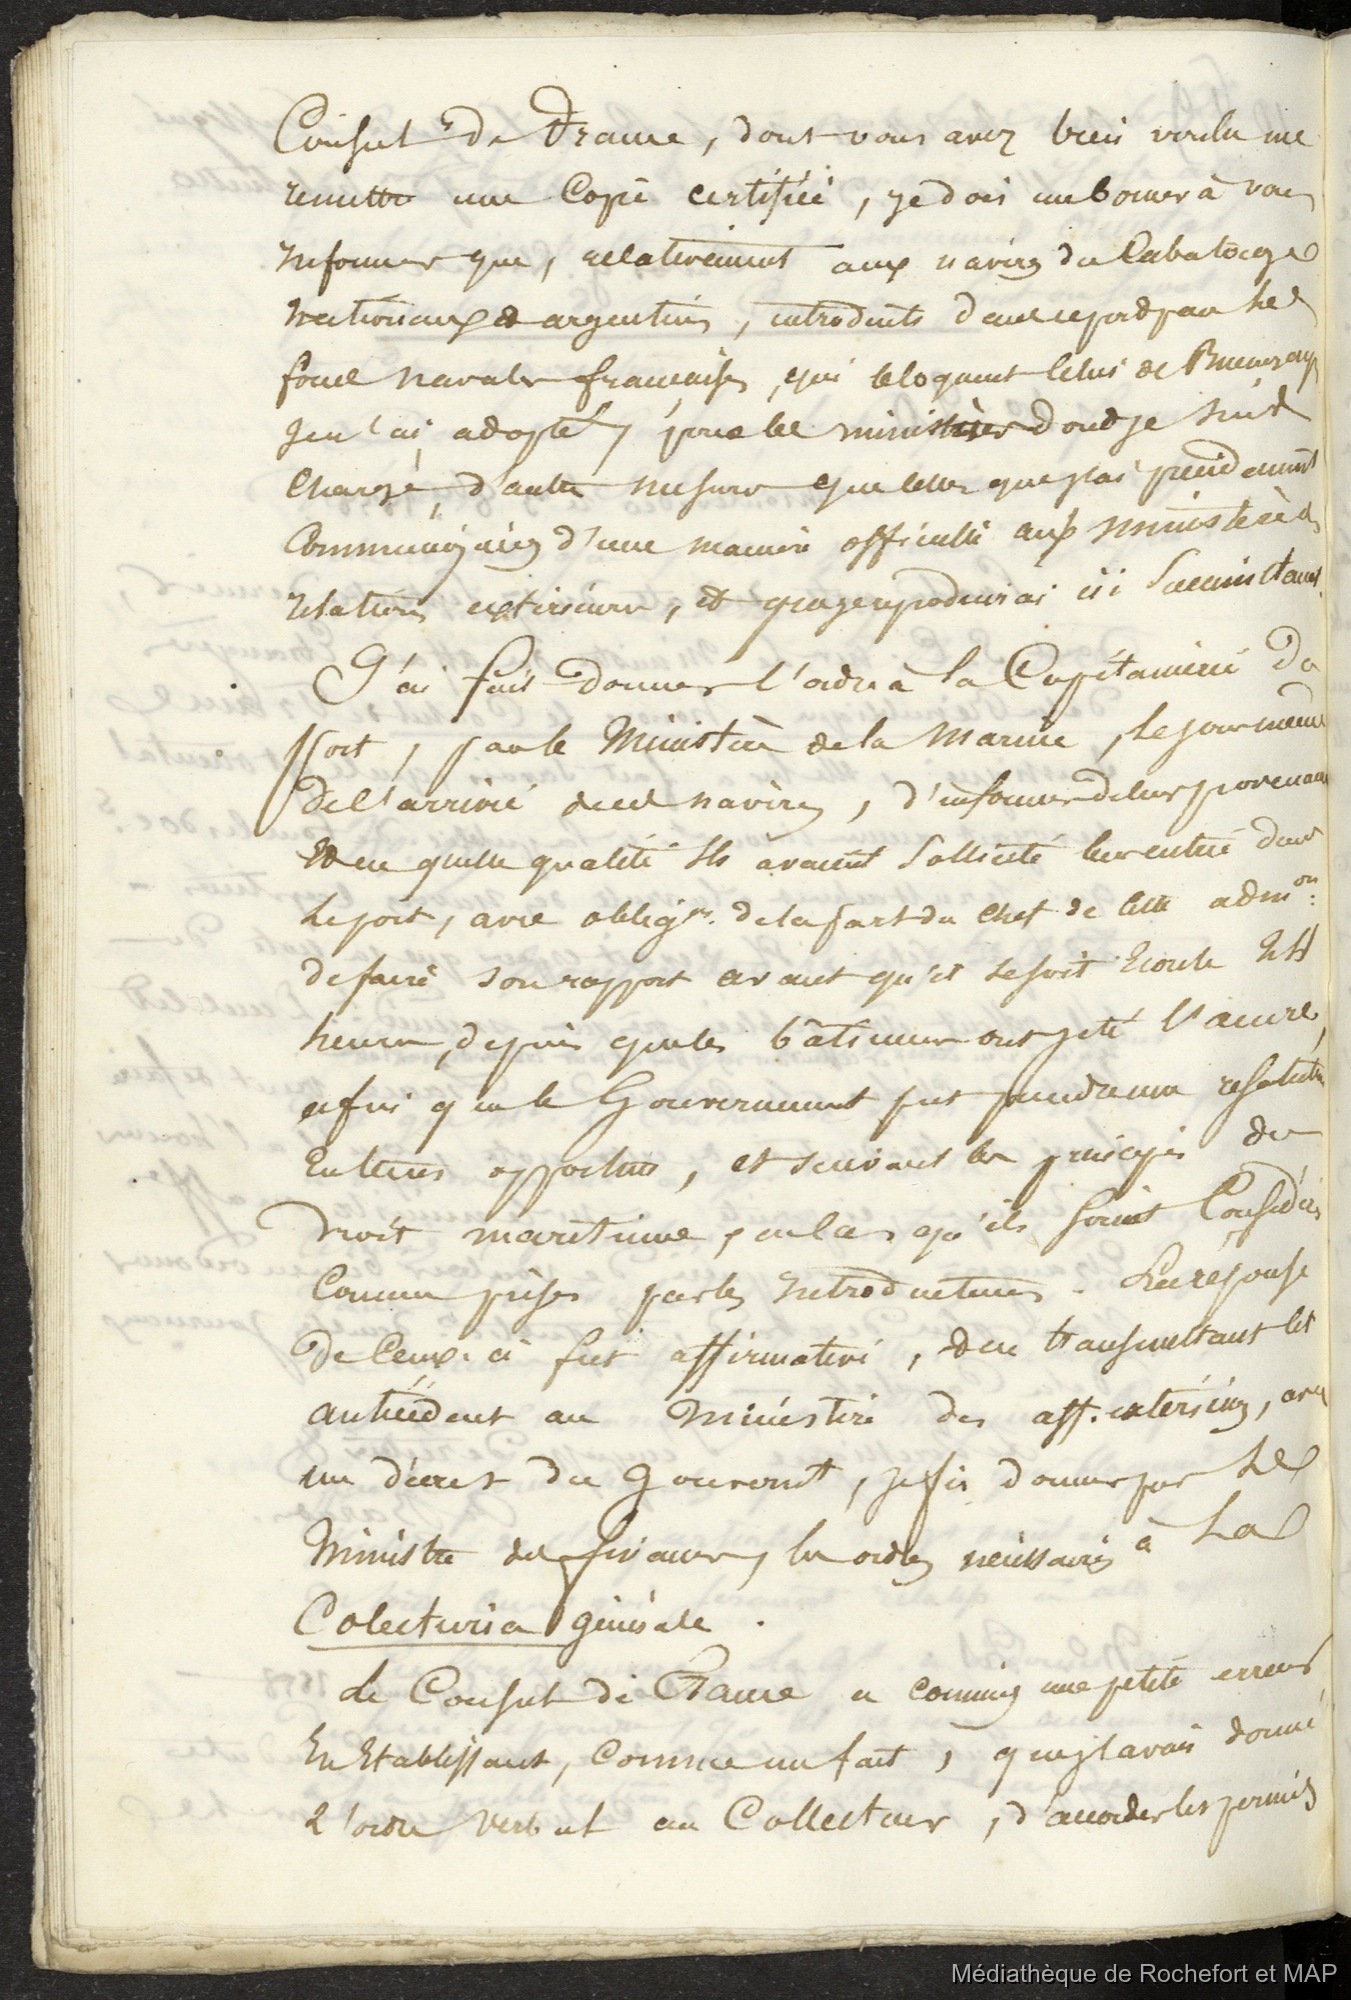 Consul de France, dont vous avez bien voulu me
remettre une Copie certifiée, je dois me borner à vous
informer que, relativement aux navires du Cabotage
nationaux et argentins, introduits dans ce port par les
forces navales françaises, qui bloquent celui de Buenosayres
je n'ai adopté, pour le ministère dont je suis
chargé, d'autre mesure que celles que j'ai précédemment
communiquées d'une manière officielle au ministère des
relations extérieures, et que je reproduirai ici succinctement.
J'ai fait donner l'ordre à la Capitainerie du
port, par le Ministère de la Marine, le jour même
de l'arrivée de ces navires, d'informer de leur provenance
et en quelle qualité ils avaient sollicité leur entrée dans
le port, avec oblig.on de la part du chef de cette adm.on
de faire son rapport avant qu'il se soit écoulé 24
heures, depuis que les bâtimens ont jeté l'ancre,
afin que le Gouvernement put prendre une résolution
en tems opportun, et suivant les principes du
droit maritime, en cas qu'ils soient considérés
comme prises par les introducteurs. La réponse
de ceux-ci fut affirmative, et en transmettant les
antécédents au Ministère des aff. extérieures, avec
un décret du gouvernt, je fis donner par le
Ministre des finances, les ordres nécessaires à la
Colecturia générale.
Le Consul de France a commis une petite erreur
en établissant, comme un fait, que j'avais donné
l'ordre verbal au Collecteur, d'accorder les permis
Médiathèque de Rochefort et MAP